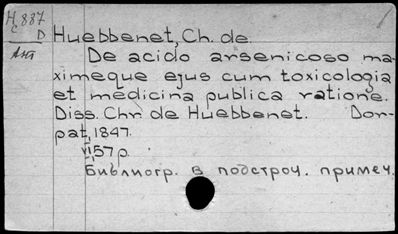 H 887
C D
Huebbenet, Ch. de
Ант
De acido arsenicoso ma-
ximeque ejus cum toxicologia
et medicina publica ratione.
Diss. Chr. de Huebbenet. Dor-
pat, 1847.
VI, 57 p.
Библиогр. в подстроч. примеч.